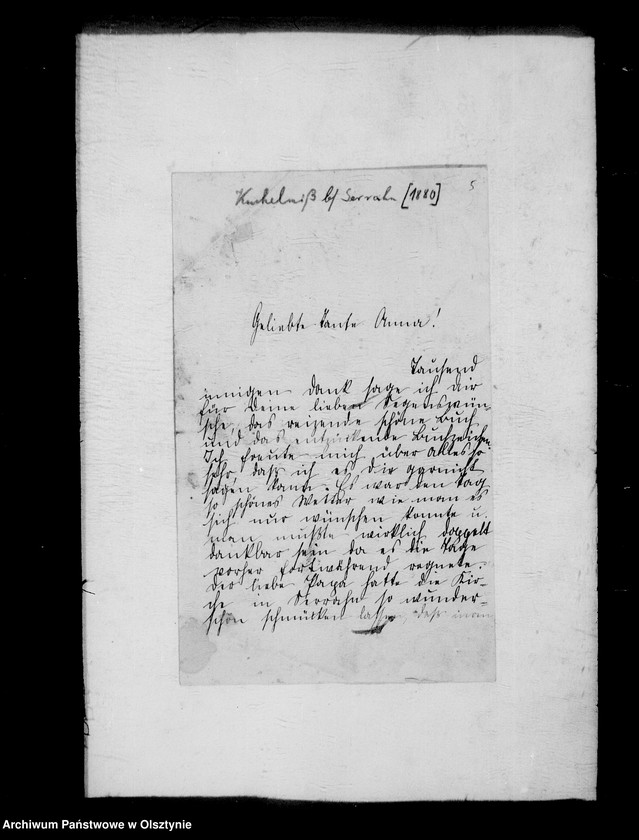 Kuchelmiß b/ Serrahn [1880]
5
Geliebte Tante Anna!
Tausend
innigen Dank sage ich Dir
für Deine lieben Segenswün-
sche, das reizende schöne Buch
und das entzückende Buchzeichen.
Ich freute mich über Alles so
sehr, daß ich es Dir garnicht
sagen kann. Es war den Tag
so schönes Wetter wie man es
sich nur wünschen konnte u.
man mußte wirklich doppelt
dankbar sein da es die Tage
vorher fortwährend regnete.
Der liebe Papa hatte die Kir-
che in Serrahn so wunder-
schön schmücken lassen, daß man
Archiwum Państwowe w Olsztynie